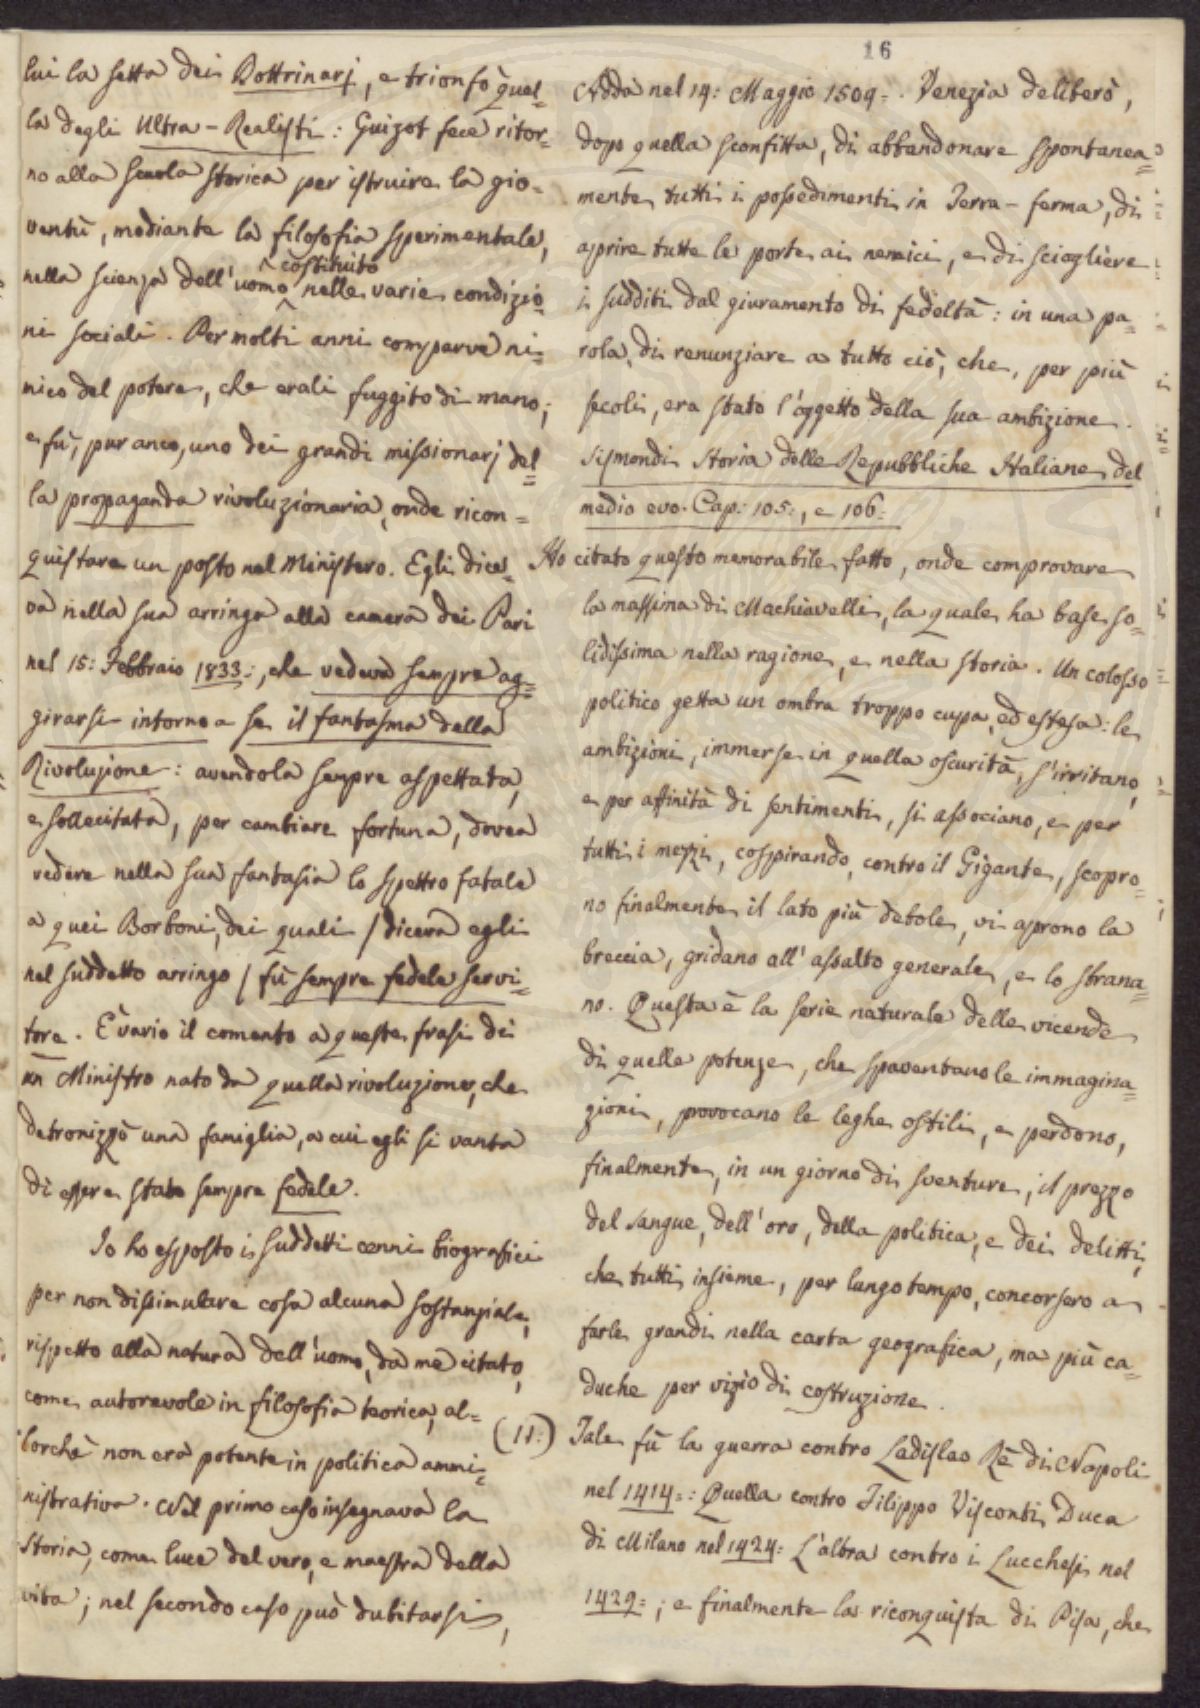 16
lui la setta dei Dottrinarj, e trionfò quel=
la degli Ultra-Realisti: Guizot fece ritor=
no alla scuola storica per istruire la gio=
ventù, mediante la filosofia sperimentale,
costituito
nella scienza dell'uomo nelle varie condizio=
ni sociali. Per molti anni comparve ni=
mico del potere, che erali fuggito di mano;
e fù, pur anco, uno dei grandi missionarj del=
la propaganda rivoluzionaria, onde ricon=
quistare un posto nel Ministero. Egli dice=
va nella sua arringa alla camera dei Pari
nel 15: Febbraio 1833:, che vedeva sempre ag=
girarsi intorno a se il fantasma della
Rivoluzione: avendola sempre aspettata,
e sollecitata, per cambiare fortuna, dovea
vedere nella sua fantasia lo spettro fatale
a quei Borboni, dei quali / diceva egli
nel suddetto arringo / fù sempre fedele servi=
tore. È vario il comento a queste frasi di
un Ministro nato da quella rivoluzione, che
detronizzò una famiglia, a cui egli si vanta
di essere stato sempre fedele.
Io ho esposto i suddetti cenni biografici
per non dissimulare cosa alcuna sostanziale,
rispetto alla natura dell'uomo, da me citato,
come autorevole in filosofia teorica, al=
lorchè non era potente in politica ammi=
nistrativa. Nel primo caso insegnava la
Storia, come luce del vero, e maestra della
vita; nel secondo caso può dubitarsi,
Adda nel 14: Maggio 1509=. Venezia deliberò,
dopo quella sconfitta, di abbandonare spontanea=
mente tutti i possedimenti in Terra-ferma, di
aprire tutte le porte ai nemici, e di sciogliere
i sudditi dal giuramento di fedeltà: in una pa=
rola, di renunziare a tutto ciò, che, per più
secoli, era stato l'oggetto della sua ambizione.
Sismondi Storia delle Repubbliche Italiane del
medio evo. Cap: 105:, e 106:
Ho citato questo memorabile fatto, onde comprovare
la massima di Machiavelli, la quale ha base so=
lidissima nella ragione, e nella storia. Un colosso
politico getta un ombra troppo cupa, ed estesa: le
ambizioni, immerse in quella oscurità, s'irritano,
e per affinità di sentimenti, si associano, e per
tutti i mezzi, cospirando, contro il Gigante, scopro=
no finalmente il lato più debole, vi aprono la
breccia, gridano all'assalto generale, e lo sbrana=
no. Questa è la serie naturale delle vicende
di quelle potenze, che spaventano le immagina=
zioni, provocano le leghe ostili, e perdono,
finalmente, in un giorno di sventure, il prezzo
del sangue, dell'oro, della politica, e dei delitti,
che tutti insieme, per lungo tempo, concorsero a
farle grandi nella carta geografica, ma più ca=
duche per vizio di costruzione.
(11:) Tale fù la guerra contro Ladislao Rè di Napoli
nel 1414=: Quella contro Filippo Visconti Duca
di Milano nel 1424: L'altra contro i Lucchesi nel
1429=; e finalmente la riconquista di Pisa, che